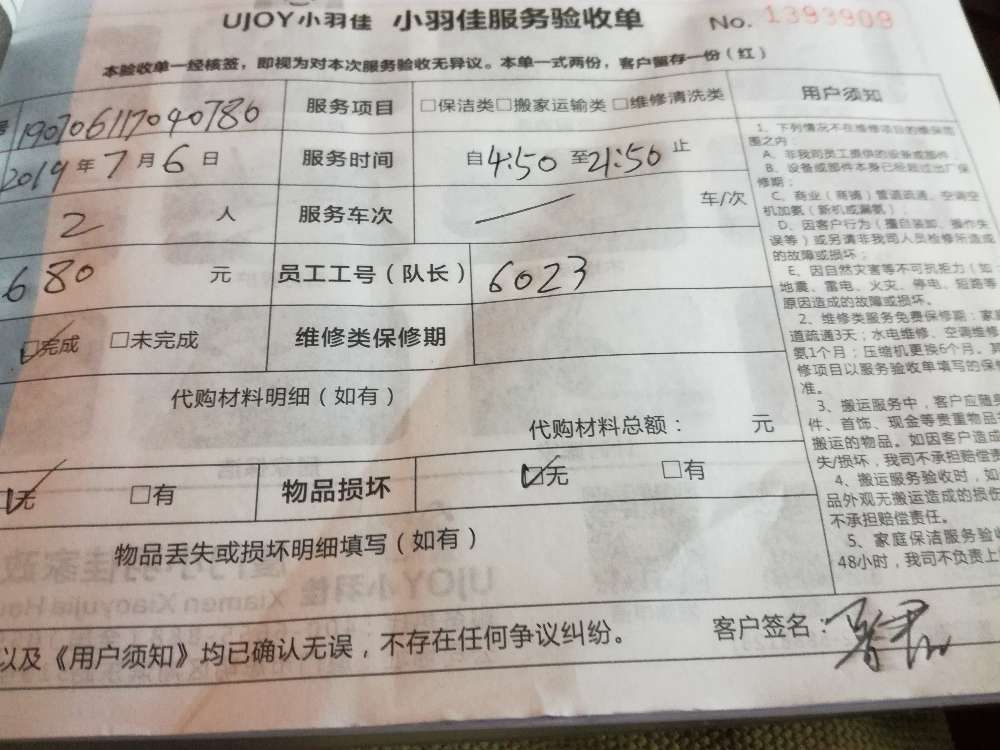 UJOY小羽佳 小羽佳服务验收单 No. 1393909
本验收单一经核签，即视为对本次服务验收无异议。本单一式两份，客户留存一份（红）
190706117040780 服务项目 □保洁类□搬家运输类□维修清洗类
2019年7月6日 服务时间 自4:50至21:50止
2 人 服务车次 车/次
680 元 员工工号（队长） 6023
□完成 □未完成 维修类保修期
代购材料明细（如有）
代购材料总额： 元
□无 □有 物品损坏 □无 □有
物品丢失或损坏明细填写（如有）
以及《用户须知》均已确认无误，不存在任何争议纠纷。 客户签名：
用户须知
1、下列情况不在维修项目的维保范
围之内：
A、非我司员工提供的设备或部件
B、设备或部件本身已经超过出厂保
修期；
C、商业（商铺）管道疏通、空调空
机加氨（新机或漏氨）
D、因客户行为（擅自装卸、操作失
误等）或另请非我司人员检修所造成
的故障或损坏；
E、因自然灾害等不可抗拒力（如：
地震、雷电、火灾、停电、短路等
原因造成的故障或损坏。
2、维修类服务免费保修期：家庭
道疏通3天；水电维修、空调维修
氨1个月；压缩机更换6个月。其
修项目以服务验收单填写的保修
准。
3、搬运服务中，客户应随身
件、首饰、现金等贵重物品
搬运的物品。如因客户造成
失/损坏，我司不承担赔偿责
4、搬运服务验收时，如
品外观无搬运造成的损伤
不承担赔偿责任。
5、家庭保洁服务验收
48小时，我司不负责上